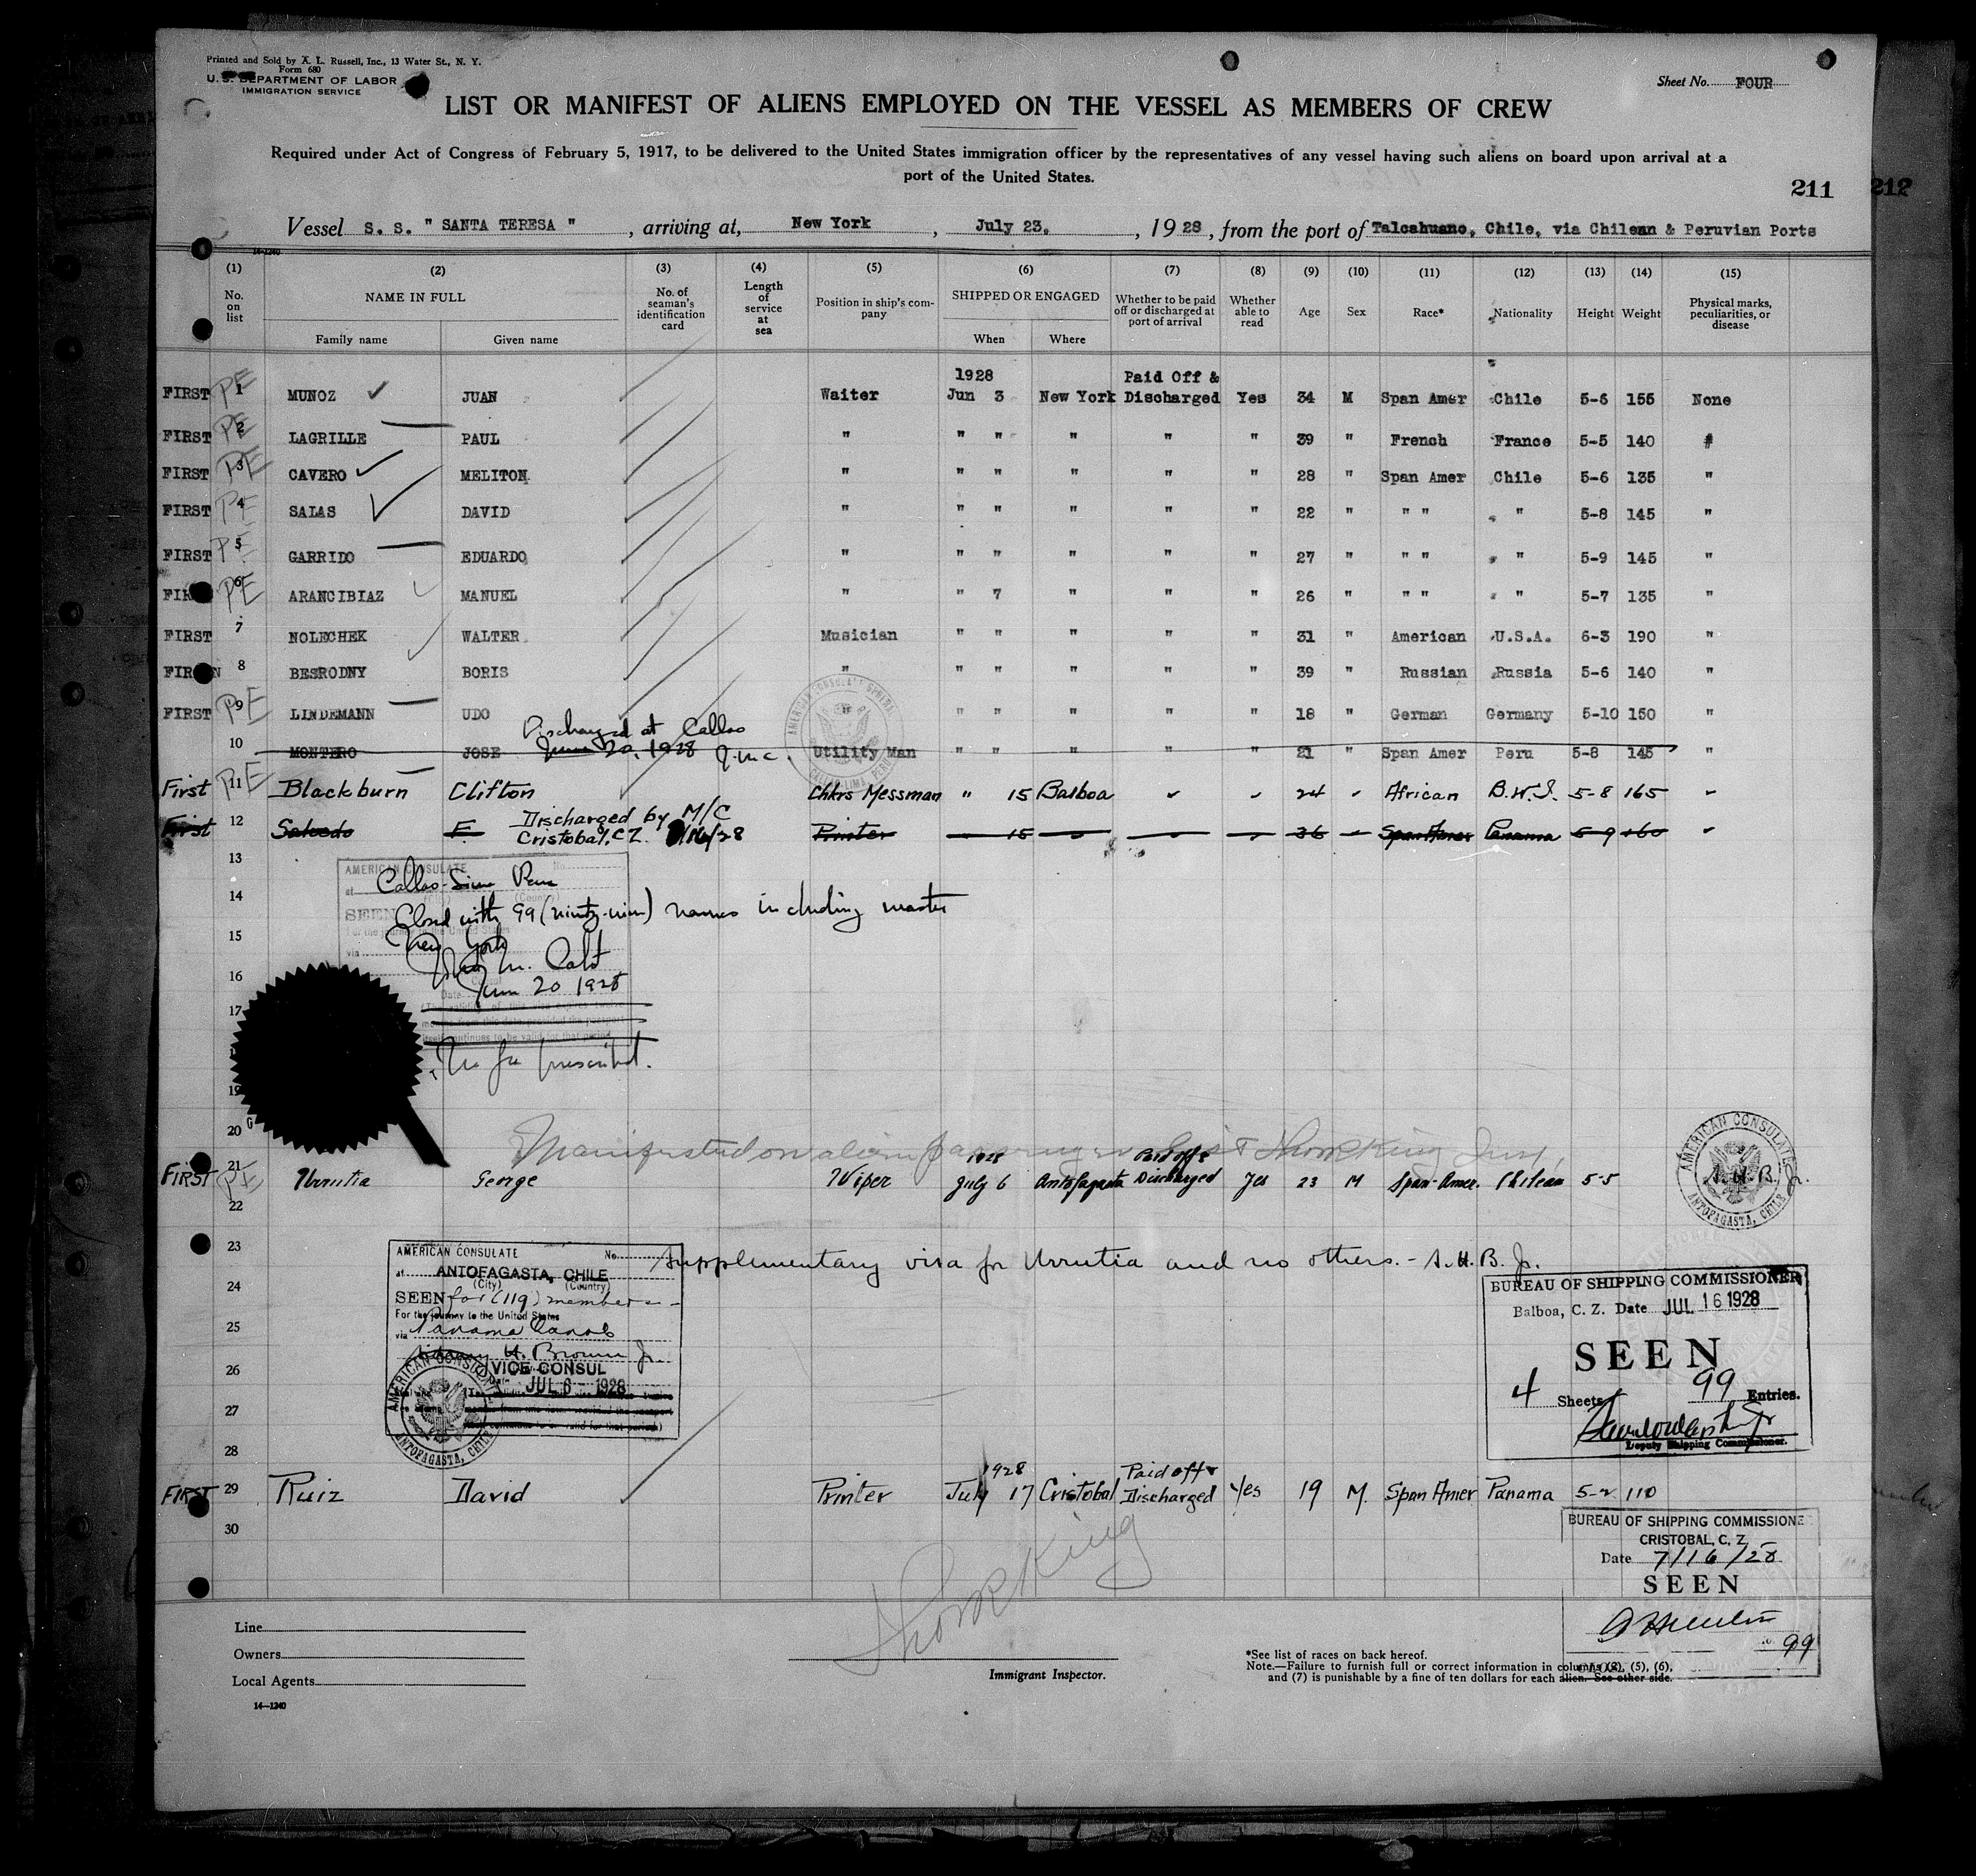 Printed and Sold by A. L. Russell, Inc., 13 Water St., N. Y.
Form 680
U. S. DEPARTMENT OF LABOR
IMMIGRATION SERVICE
Sheet No. FOUR
LIST OR MANIFEST OF ALIENS EMPLOYED ON THE VESSEL AS MEMBERS OF CREW
Required under Act of Congress of February 5, 1917, to be delivered to the United States immigration officer by the representatives of any vessel having such aliens on board upon arrival at a
port of the United States.
211 212
Vessel S. S. " SANTA TERESA " , arriving at, New York , July 23, , 1928 , from the port of Talcahuano, Chile, via Chilean & Peruvian Ports
14-1240
(1) (2) (3) (4) (5) (6) (7) (8) (9) (10) (11) (12) (13) (14) (15)
No. on list NAME IN FULL Family name Given name No. of seaman's identification card Length of service at sea Position in ship's company SHIPPED OR ENGAGED When Where Whether to be paid off or discharged at port of arrival Whether able to read Age Sex Race* Nationality Height Weight Physical marks, peculiarities, or disease
1928 Paid Off &
FIRST PE 1 MUNOZ JUAN Waiter Jun 3 New York Discharged Yes 34 M Span Amer Chile 5-6 155 None
FIRST PE 2 LAGRILLE PAUL " " " " " " 39 " French France 5-5 140 "
FIRST PE 3 CAVERO MELITON " " " " " " 28 " Span Amer Chile 5-6 135 "
FIRST PE 4 SALAS DAVID " " " " " " 22 " " " " 5-8 145 "
FIRST PE 5 GARRIDO EDUARDO " " " " " " 27 " " " " 5-9 145 "
FIRST PE 6 ARANCIBIAZ MANUEL " " 7 " " " 26 " " " " 5-7 135 "
FIRST 7 NOLECHEK WALTER Musician " " " " " 31 " American U.S.A. 6-3 190 "
FIRST 8 BESRODNY BORIS " " " " " " 39 " Russian Russia 5-6 140 "
FIRST PE 9 LINDEMANN UDO " " " " " 18 " German Germany 5-10 150 "
Discharged at Callao
10 MONTERO JOSE June 20, 1928 J.M.C. Utility Man " " " " " 21 " Span Amer Peru 5-8 145 "
AMERICAN CONSULATE GENERAL
CALLAO-LIMA, PERU
First PE 11 Blackburn Clifton Chkrs Messman " 15 Balboa " " 24 " African B.W.I. 5-8 165 "
First 12 Salcedo E. Discharged by M/C Printer 15 36 Span Amer Panama 5-9 160 "
Cristobal, C.Z. 7/16/28
13
AMERICAN CONSULATE No.
at Callao-Lima Peru
14
SEEN
Closed with 99 (ninety-nine) names including master
For the journey to the United States
15
via New York
16
June 20 1928
17
No fee prescribed.
19
20
Manifested on alien passenger
1928 Paid off &
FIRST PE 21 Urrutia George Wiper July 6 Antofagasta Discharged Yes 23 M Span-Amer. Chilean 5-5
AMERICAN CONSULATE
A.H.B. Jr.
ANTOFAGASTA, CHILE
22
23
Supplementary visa for Urrutia and no others. - A.H.B. Jr.
AMERICAN CONSULATE No.
at ANTOFAGASTA, CHILE
(City) (Country)
24
SEEN for (119) members
For the journey to the United States
25
via Panama Canal
H. Brown Jr.
26
VICE CONSUL
Date JUL 6 - 1928
27
AMERICAN CONSULATE
ANTOFAGASTA, CHILE
28
BUREAU OF SHIPPING COMMISSIONER
Balboa, C. Z. Date JUL 16 1928
SEEN
4 Sheets 99 Entries.
Deputy Shipping Commissioner.
1928 Paid off &
FIRST 29 Ruiz David Printer July 17 Cristobal Discharged Yes 19 M. Span Amer Panama 5-2 110
30
BUREAU OF SHIPPING COMMISSIONE
CRISTOBAL, C. Z.
Date 7/16/28
SEEN
99
Line
Owners
Local Agents
14—1240
Thor King
Immigrant Inspector.
*See list of races on back hereof.
Note.—Failure to furnish full or correct information in columns (2), (5), (6),
and (7) is punishable by a fine of ten dollars for each alien. See other side.